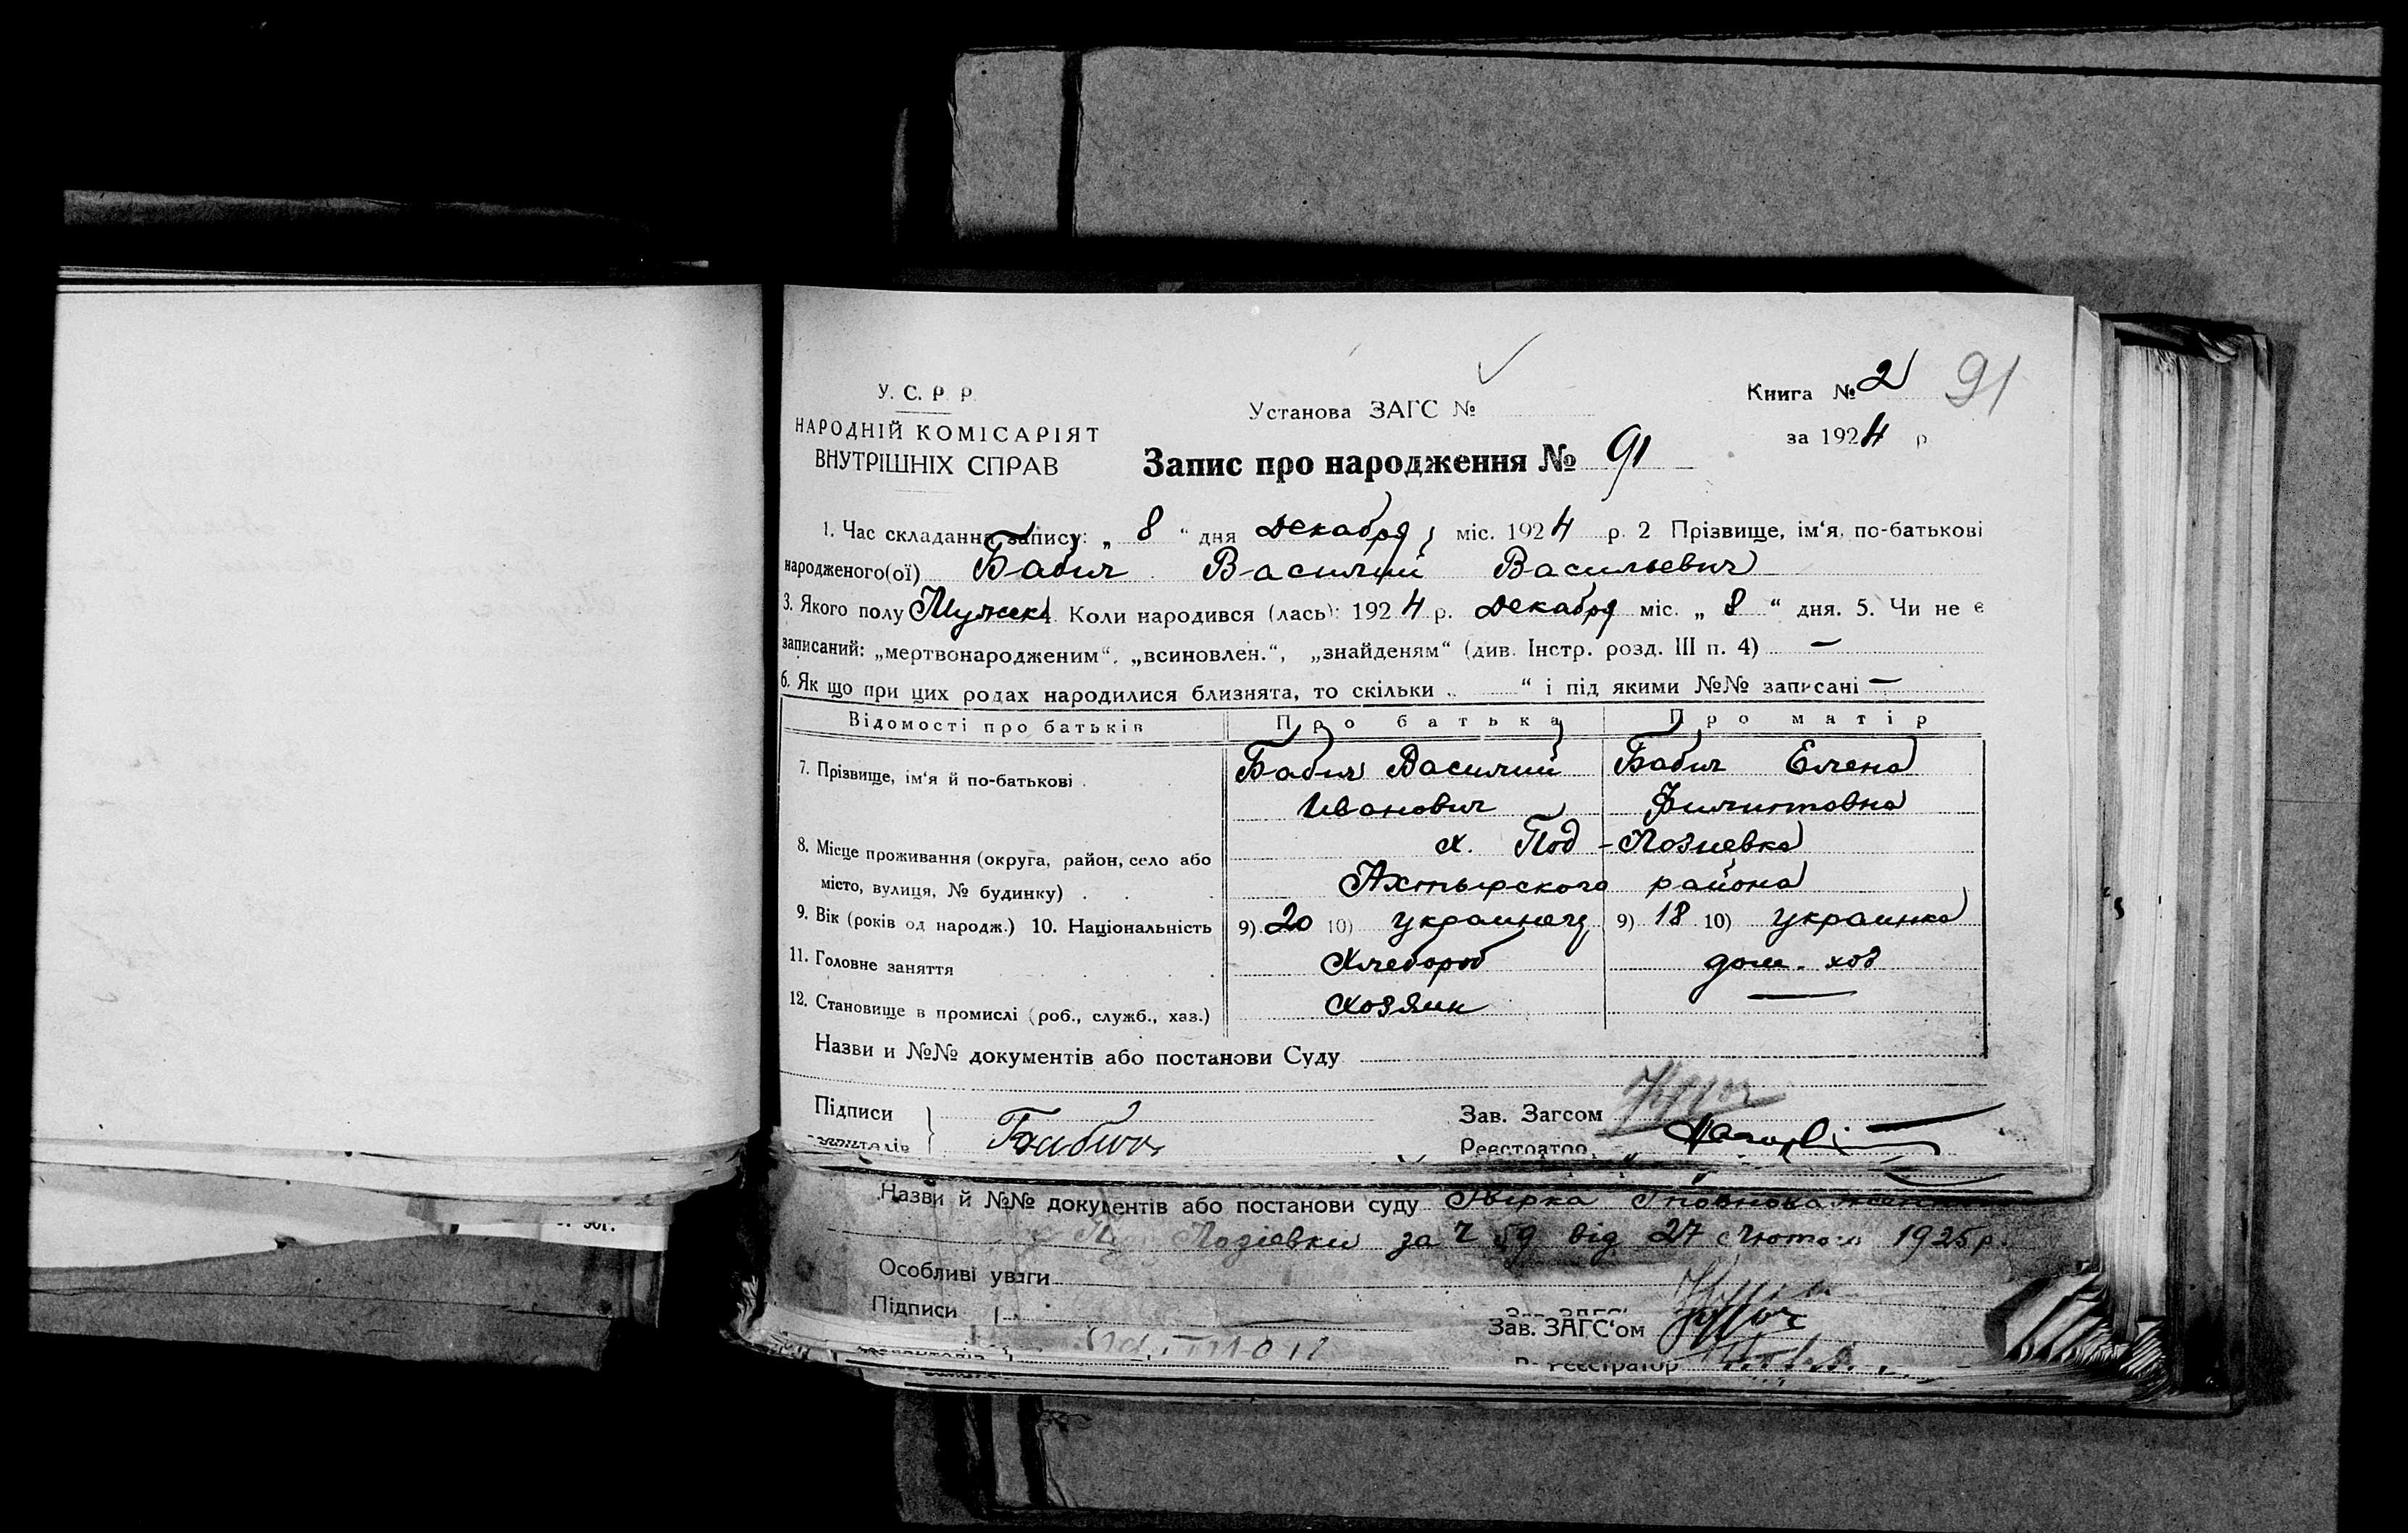 У. С. Р. Р.
НАРОДНІЙ КОМІСАРІЯТ
ВНУТРІШНІХ СПРАВ
Установа ЗАГС №
Запис про народження № 91
Книга № 2
91
за 1924 р
1. Час складання запису: „ 8 “ дня Декабря міс. 1924 р. 2 Прізвище, ім‘я, по-батькові
народженого(ої) Бабич Василий Васильевич
3. Якого полу Мужск 4. Коли народився (лась): 1924 р. Декабря міс. „ 8 “ дня. 5. Чи не є
записаний: „мертвонародженим“, „всиновлен.“, „знайденям“ (див. Інстр. розд. III п. 4) —
6. Як що при цих родах народилися близнята, то скільки „ “ і під якими №№ записані —
Відомості про батьків Про батька Про матір
7. Прізвище, ім‘я й по-батькові . Бабич Василий Бабич Елена
Иванович Филиповна
8. Місце проживання (округа, район, село або х. Под-Лозиевка
місто, вулиця, № будинку) . . . Ахтырского района
9. Вік (років од народж.) 10. Національність 9) 20 10) украинец 9) 18 10) украинка
11. Головне заняття . . Хлебороб дом. хоз
12. Становище в промислі (роб., служб., хаз.) хозяин —
Назви и №№ документів або постанови Суду
Підписи Зав. Загсом
Бабич Реєстратор
Назви й №№ документів або постанови суду
Лозієвки за Ч 59 від 27 лютого 1925 р.
Особливі уваги
Підписи
Зав. ЗАГС‘ом
Реєстратор